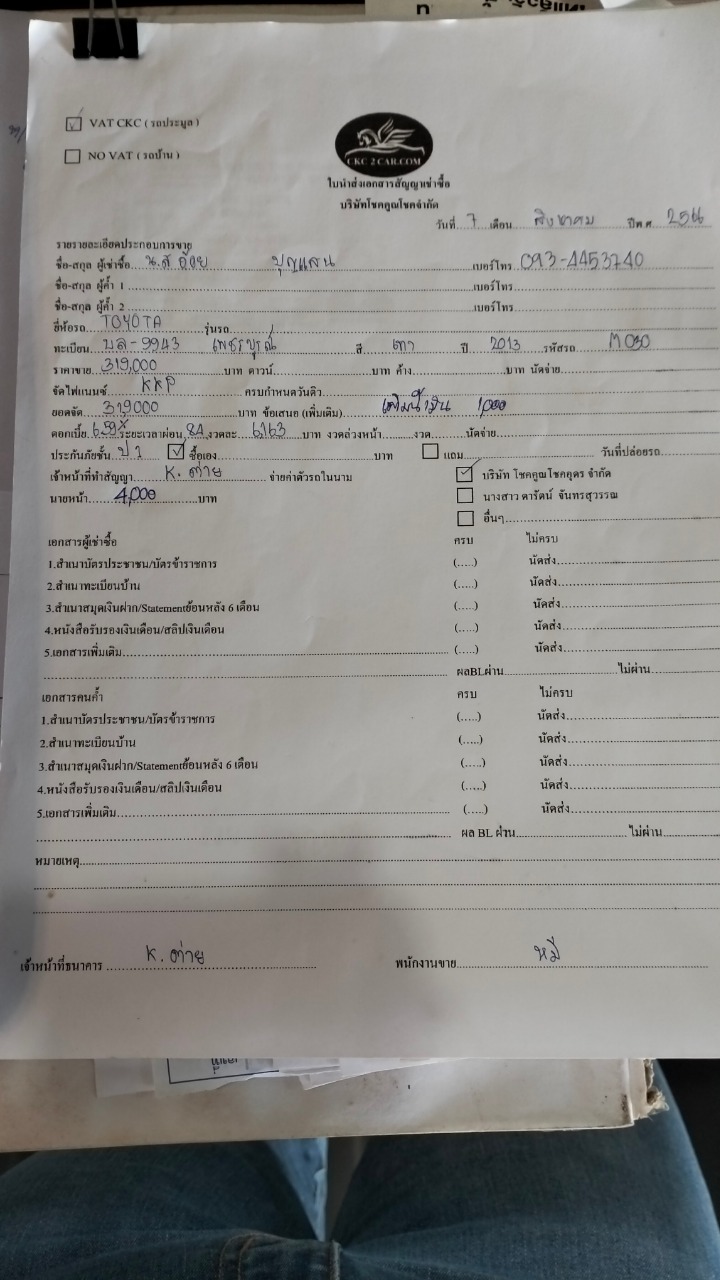 VAT CKC ( รถประมูล )
NO VAT ( รถบ้าน )
CKC 2 CAR.COM
ใบนำส่งเอกสารสัญญาเช่าซื้อ
บริษัทโชคคูณโชคจำกัด
วันที่ 7 เดือน สิงหาคม ปีพ.ศ. 2566
รายรายละเอียดประกอบการขาย
ชื่อ-สกุล ผู้เช่าซื้อ น.ส อ้อย บุญแสน เบอร์โทร 093-4453740
ชื่อ-สกุล ผู้ค้ำ 1 เบอร์โทร
ชื่อ-สกุล ผู้ค้ำ 2 เบอร์โทร
ยี่ห้อรถ TOYOTA รุ่นรถ
ทะเบียน บล-9943 เพชรบูรณ์ สี เทา ปี 2013 รหัสรถ M030
ราคาขาย 319,000 บาท ดาวน์ บาท ค้าง บาท นัดจ่าย
จัดไฟแนนซ์ KKP ครบกำหนดวันดิว
ยอดจัด 319000 บาท ข้อเสนอ (เพิ่มเติม) เติมน้ำมัน 1,000
ดอกเบี้ย 6.59% ระยะเวลาผ่อน 84 งวดละ 6,163 บาท งวดล่วงหน้า งวด นัดจ่าย
ประกันภัยชั้น ป 1 ซื้อเอง บาท แถม วันที่ปล่อยรถ
เจ้าหน้าที่ทำสัญญา K. ต่าย จ่ายค่าตัวรถในนาม บริษัท โชคคูณโชคอุดร จำกัด
นายหน้า 4,000 บาท นางสาว ดารัตน์ จันทรสุวรรณ
อื่นๆ
เอกสารผู้เช่าซื้อ ครบ ไม่ครบ
1.สำเนาบัตรประชาชน/บัตรข้าราชการ (.....) นัดส่ง
2.สำเนาทะเบียนบ้าน (.....) นัดส่ง
3.สำเนาสมุดเงินฝาก/Statementย้อนหลัง 6 เดือน (.....) นัดส่ง
4.หนังสือรับรองเงินเดือน/สลิปเงินเดือน (.....) นัดส่ง
5.เอกสารเพิ่มเติม (.....) นัดส่ง
ผลBLผ่าน ไม่ผ่าน
เอกสารคนค้ำ ครบ ไม่ครบ
1.สำเนาบัตรประชาชน/บัตรข้าราชการ (.....) นัดส่ง
2.สำเนาทะเบียนบ้าน (.....) นัดส่ง
3.สำเนาสมุดเงินฝาก/Statementย้อนหลัง 6 เดือน (.....) นัดส่ง
4.หนังสือรับรองเงินเดือน/สลิปเงินเดือน (.....) นัดส่ง
5.เอกสารเพิ่มเติม (.....) นัดส่ง
ผล BL ผ่าน ไม่ผ่าน
หมายเหตุ
เจ้าหน้าที่ธนาคาร K. ต่าย พนักงานขาย หมี